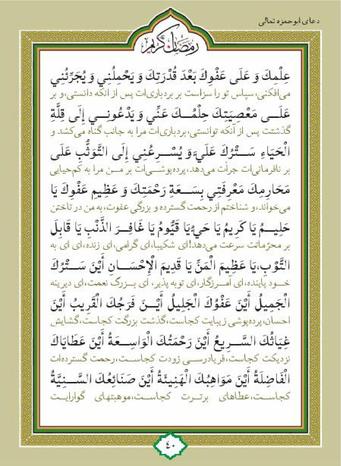 دعای ابوحمزه ثمالی
رمضان کریم
عِلْمِكَ وَ عَلَى عَفْوِكَ بَعْدَ قُدْرَتِكَ وَ يَحْمِلُنِي وَ يُجَرِّئُنِي
می‌افکنی، سپاس تو را سزاست بر بردباری‌ات پس از آنکه دانستی، و بر
عَلَى مَعْصِيَتِكَ حِلْمُكَ عَنِّي وَ يَدْعُونِي إِلَى قِلَّةِ
گذشتت پس از آنکه توانستی، بردباری‌ات مرا به جانب گناه می‌کشد و
الْحَيَاءِ سَتْرُكَ عَلَيَّ وَ يُسْرِعُنِي إِلَى التَّوَثُّبِ عَلَى
بر نافرمانی‌ات جرأت می‌دهد، پرده‌پوشی‌ات بر من مرا به کم‌حیایی
مَحَارِمِكَ مَعْرِفَتِي بِسَعَةِ رَحْمَتِكَ وَ عَظِيمِ عَفْوِكَ يَا
می‌خواند، و شناختم از رحمت گسترده و بزرگی عفوت، به من در تاختن
حَلِيمُ يَا كَرِيمُ يَا حَيُّ يَا قَيُّومُ يَا غَافِرَ الذَّنْبِ يَا قَابِلَ
بر محرّماتت سرعت می‌دهد! ای شکیبا، ای گرامی، ای زنده، ای به
التَّوْبِ، يَا عَظِيمَ الْمَنِّ يَا قَدِيمَ الْإِحْسَانِ أَيْنَ سَتْرُكَ
خود پاینده، ای آمرزگار، ای توبه پذیر، ای بزرگ نعمت، ای دیرینه
الْجَمِيلُ أَيْنَ عَفْوُكَ الْجَلِيلُ أَيْنَ فَرَجُكَ الْقَرِيبُ أَيْنَ
احسان، پرده‌پوشی زیبایت کجاست، گذشت بزرگت کجاست، گشایش
غِيَاثُكَ السَّرِيعُ أَيْنَ رَحْمَتُكَ الْوَاسِعَةُ أَيْنَ عَطَايَاكَ
نزدیکت کجاست، فریادرسی زودت کجاست، رحمت گسترده‌ات
الْفَاضِلَةُ أَيْنَ مَوَاهِبُكَ الْهَنِيئَةُ أَيْنَ صَنَائِعُكَ السَّنِيَّةُ
کجاست، عطاهای برترت کجاست، موهبتهای گوارایت
۴۰